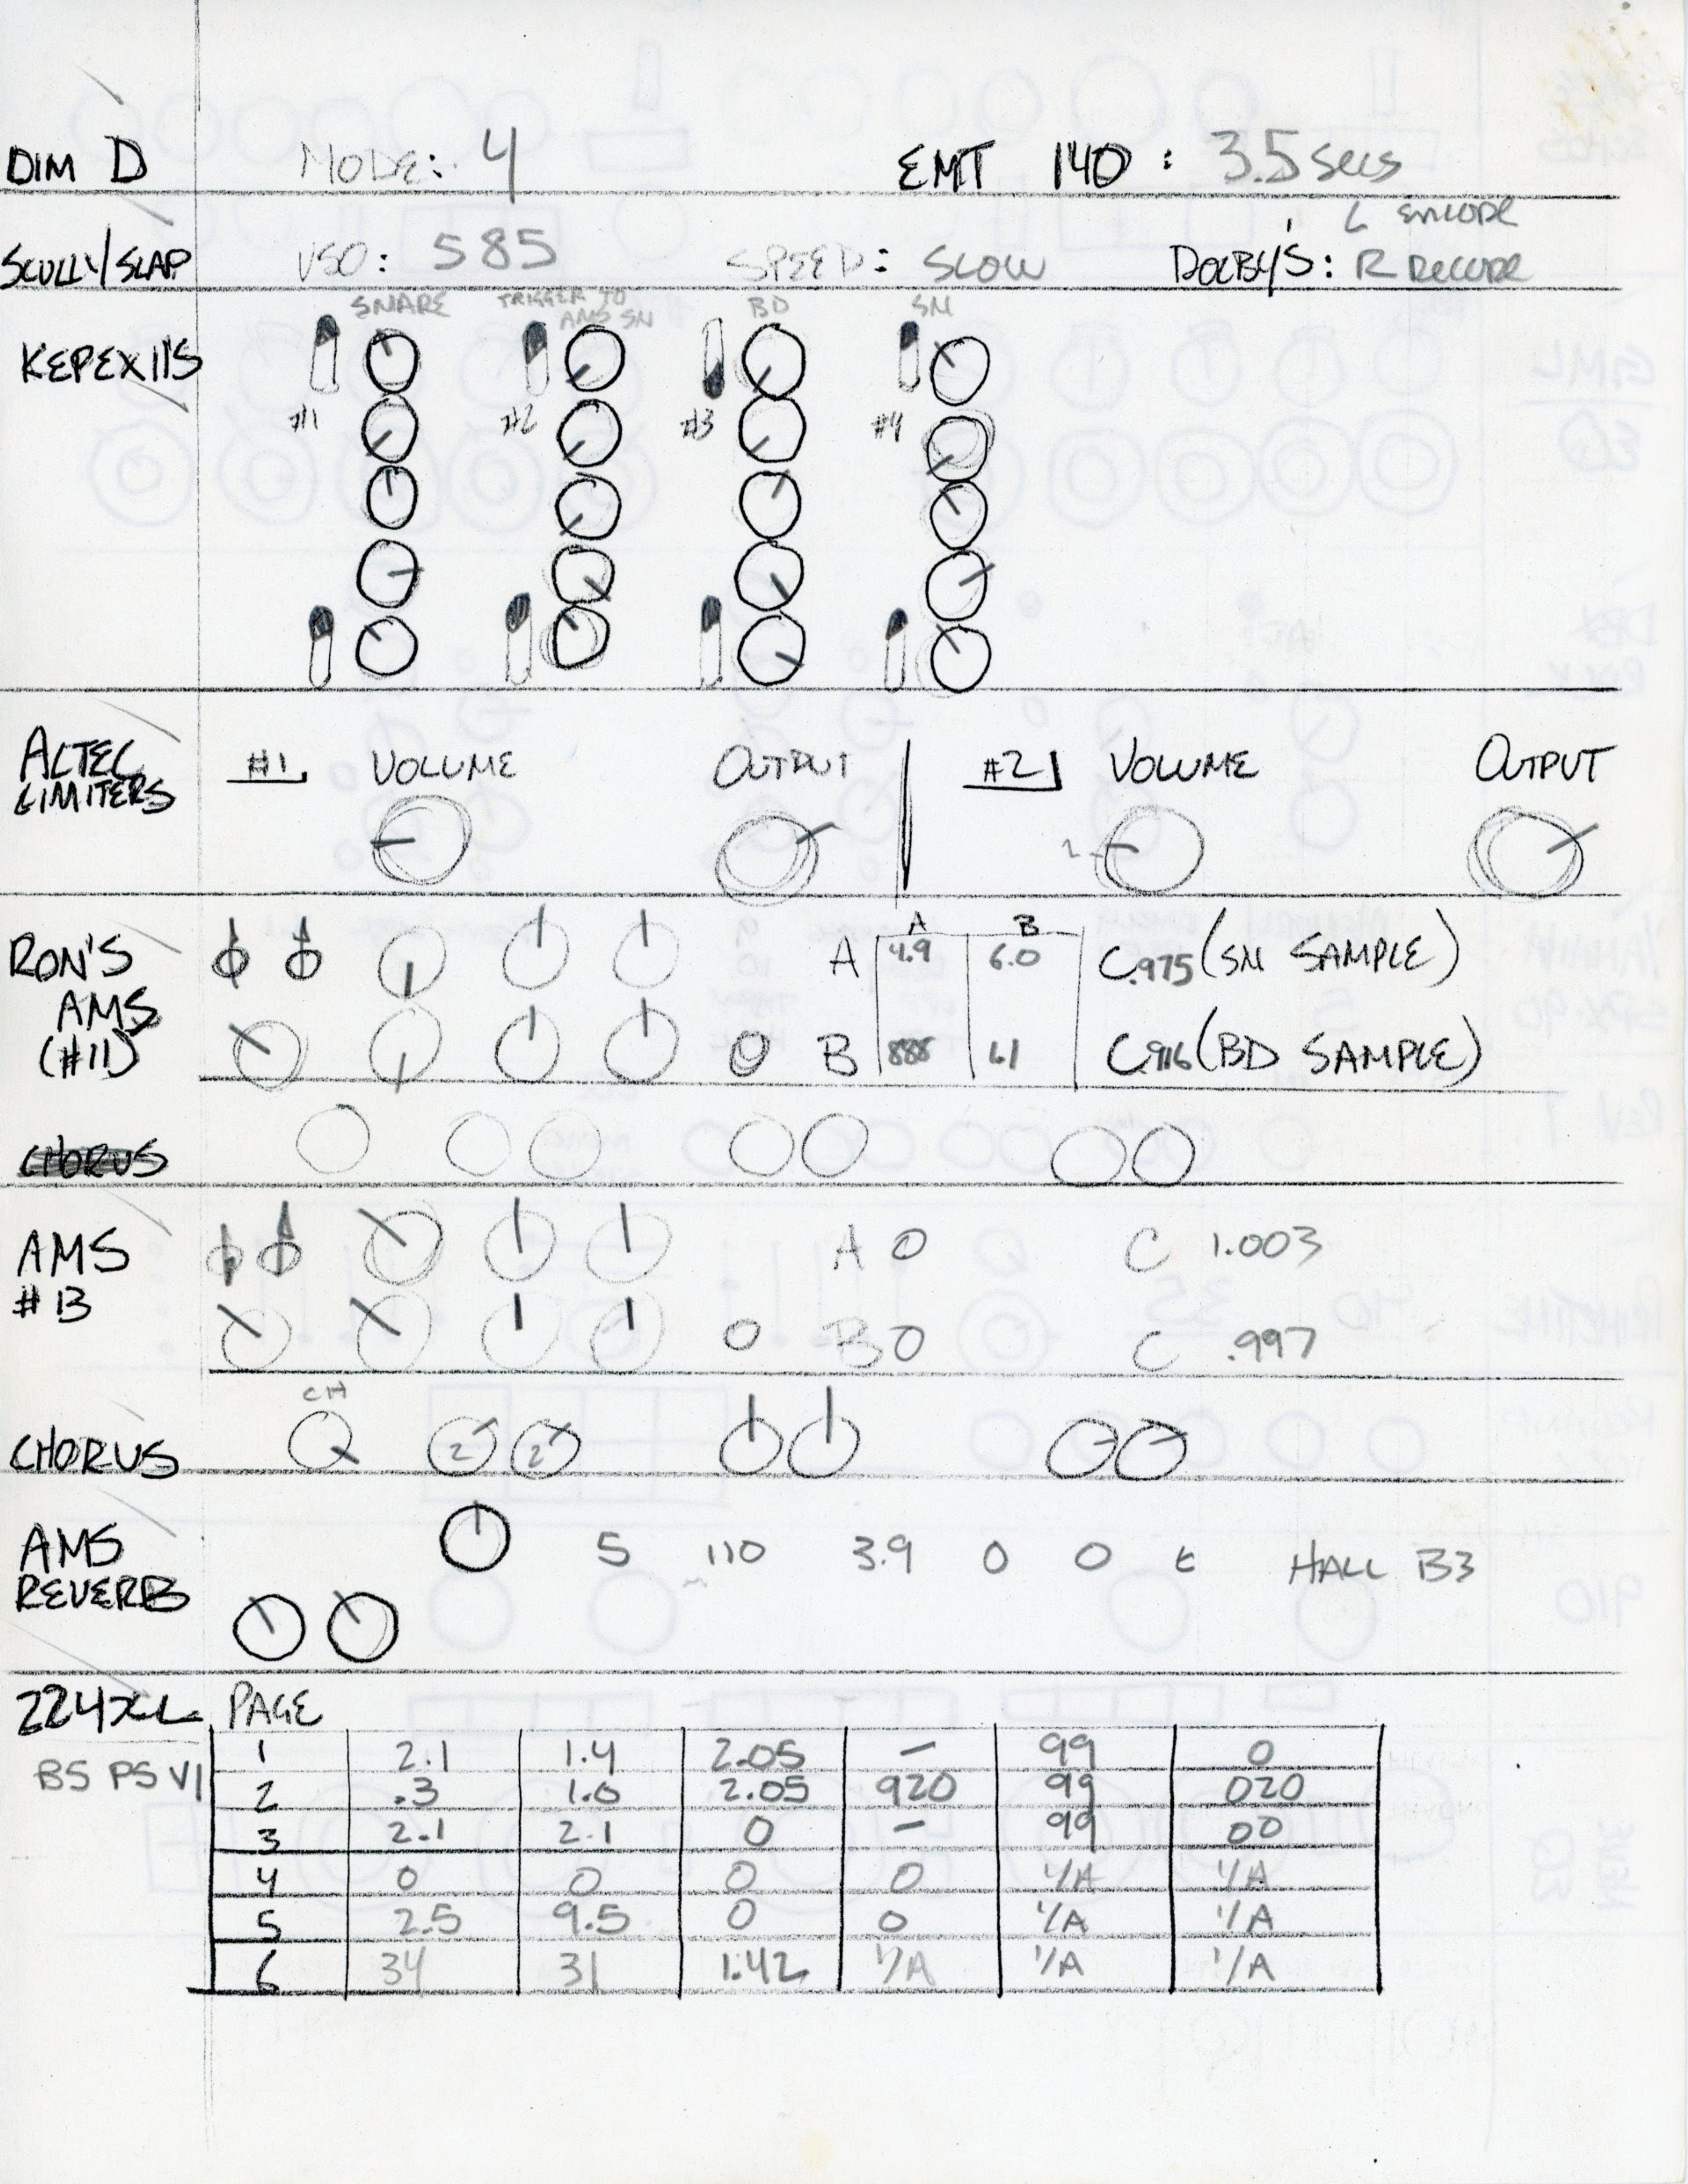 DIM D MODE: 4 EMT 140 : 3.5 SECS
SCULLY/SLAP VSO: 585 SPEED: SLOW DOLBY'S: L ENCODE
R RECORD
SNARE TRIGGER TO AMS SN BD SN
KEPEX II'S
#1 #2 #3 #4
ALTEC LIMITERS #1 VOLUME OUTPUT #2 VOLUME OUTPUT
A B
RON'S AMS (#11) A 4.9 6.0 C.975 (SN SAMPLE)
B 888 61 C.916 (BD SAMPLE)
CHORUS
AMS #13 A 0 C 1.003
0 B 0 C .997
CH
CHORUS 2 2
AMS REVERB 5 110 3.9 0 0 E HALL B3
224XL PAGE
BS PS V1
1 2.1 1.4 2.05 — 99 0
2 .3 1.0 2.05 920 99 020
3 2.1 2.1 0 — 99 00
4 0 0 0 0 1/A 1/A
5 2.5 9.5 0 0 1/A 1/A
6 34 31 1.42 1/A 1/A 1/A